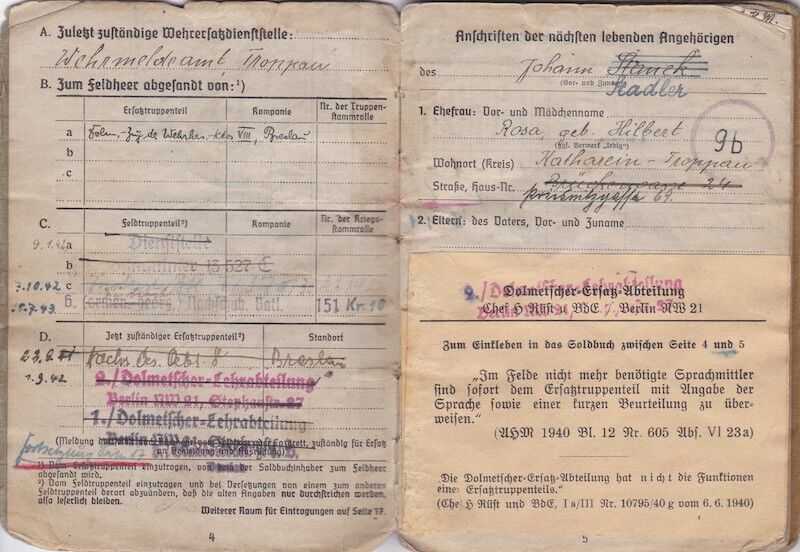 A. Zuletzt zuständige Wehrersatzdienststelle:
Wehrmeldeamt, Troppau
B. Zum Feldheer abgesandt von:¹)
Ersatztruppenteil Kompanie Nr. der Truppen-
stammrolle
a VIII, Breslau
b
c
C. Feldtruppenteil²) Kompanie Nr. der Kriegs-
stammrolle
a Dienststelle
b 13 527
7.10.42 c
6. Nachschub. Batl. 151 Kr. 10
D. Jetzt zuständiger Ersatztruppenteil²) Standort
8 Breslau
1.9.42 2./Dolmetscher-Lehrabteilung
Berlin NW 21, Stephanstr. 27
1./Dolmetscher-Lehrabteilung
(Meldung zuständig für Ersatz
an Bekleidung und Ausrüstung)
Fortsetzung 17
¹) Vom Ersatztruppenteil einzutragen, von dem der Soldbuchinhaber zum Feldheer
abgesandt wird.
²) Vom Feldtruppenteil einzutragen und bei Versetzungen von einem zum anderen
Feldtruppenteil derart abzuändern, daß die alten Angaben nur durchstrichen werden,
also leserlich bleiben.
Weiterer Raum für Eintragungen auf Seite 17.
4
Anschriften der nächsten lebenden Angehörigen
des Johann Stanek
(Vor- und Zuname)
Stadler
1. Ehefrau: Vor- und Mädchenname
Rosa, geb. Hilbert
(ggf. Vermerk „ledig")
9b
Wohnort (Kreis) Katharein-Troppau
Straße, Haus-Nr. 24
69.
2. Eltern: des Vaters, Vor- und Zuname
2./Dolmetscher-Lehrabteilung
Dolmetscher-Ersatz-Abteilung
Chef H Rüst u BdE / Berlin NW 21
Zum Einkleben in das Soldbuch zwischen Seite 4 und 5
„Im Felde nicht mehr benötigte Sprachmittler
sind sofort dem Ersatztruppenteil mit Angabe der
Sprache sowie einer kurzen Beurteilung zu über-
weisen."
(AHM 1940 Bl. 12 Nr. 605 Abs. VI 23a)
„Die Dolmetscher-Ersatz-Abteilung hat nicht die Funktionen
eines Ersatztruppenteils."
(Che H Rüst und BdE, I a/III Nr. 10795/40 g vom 6. 6. 1940)
5